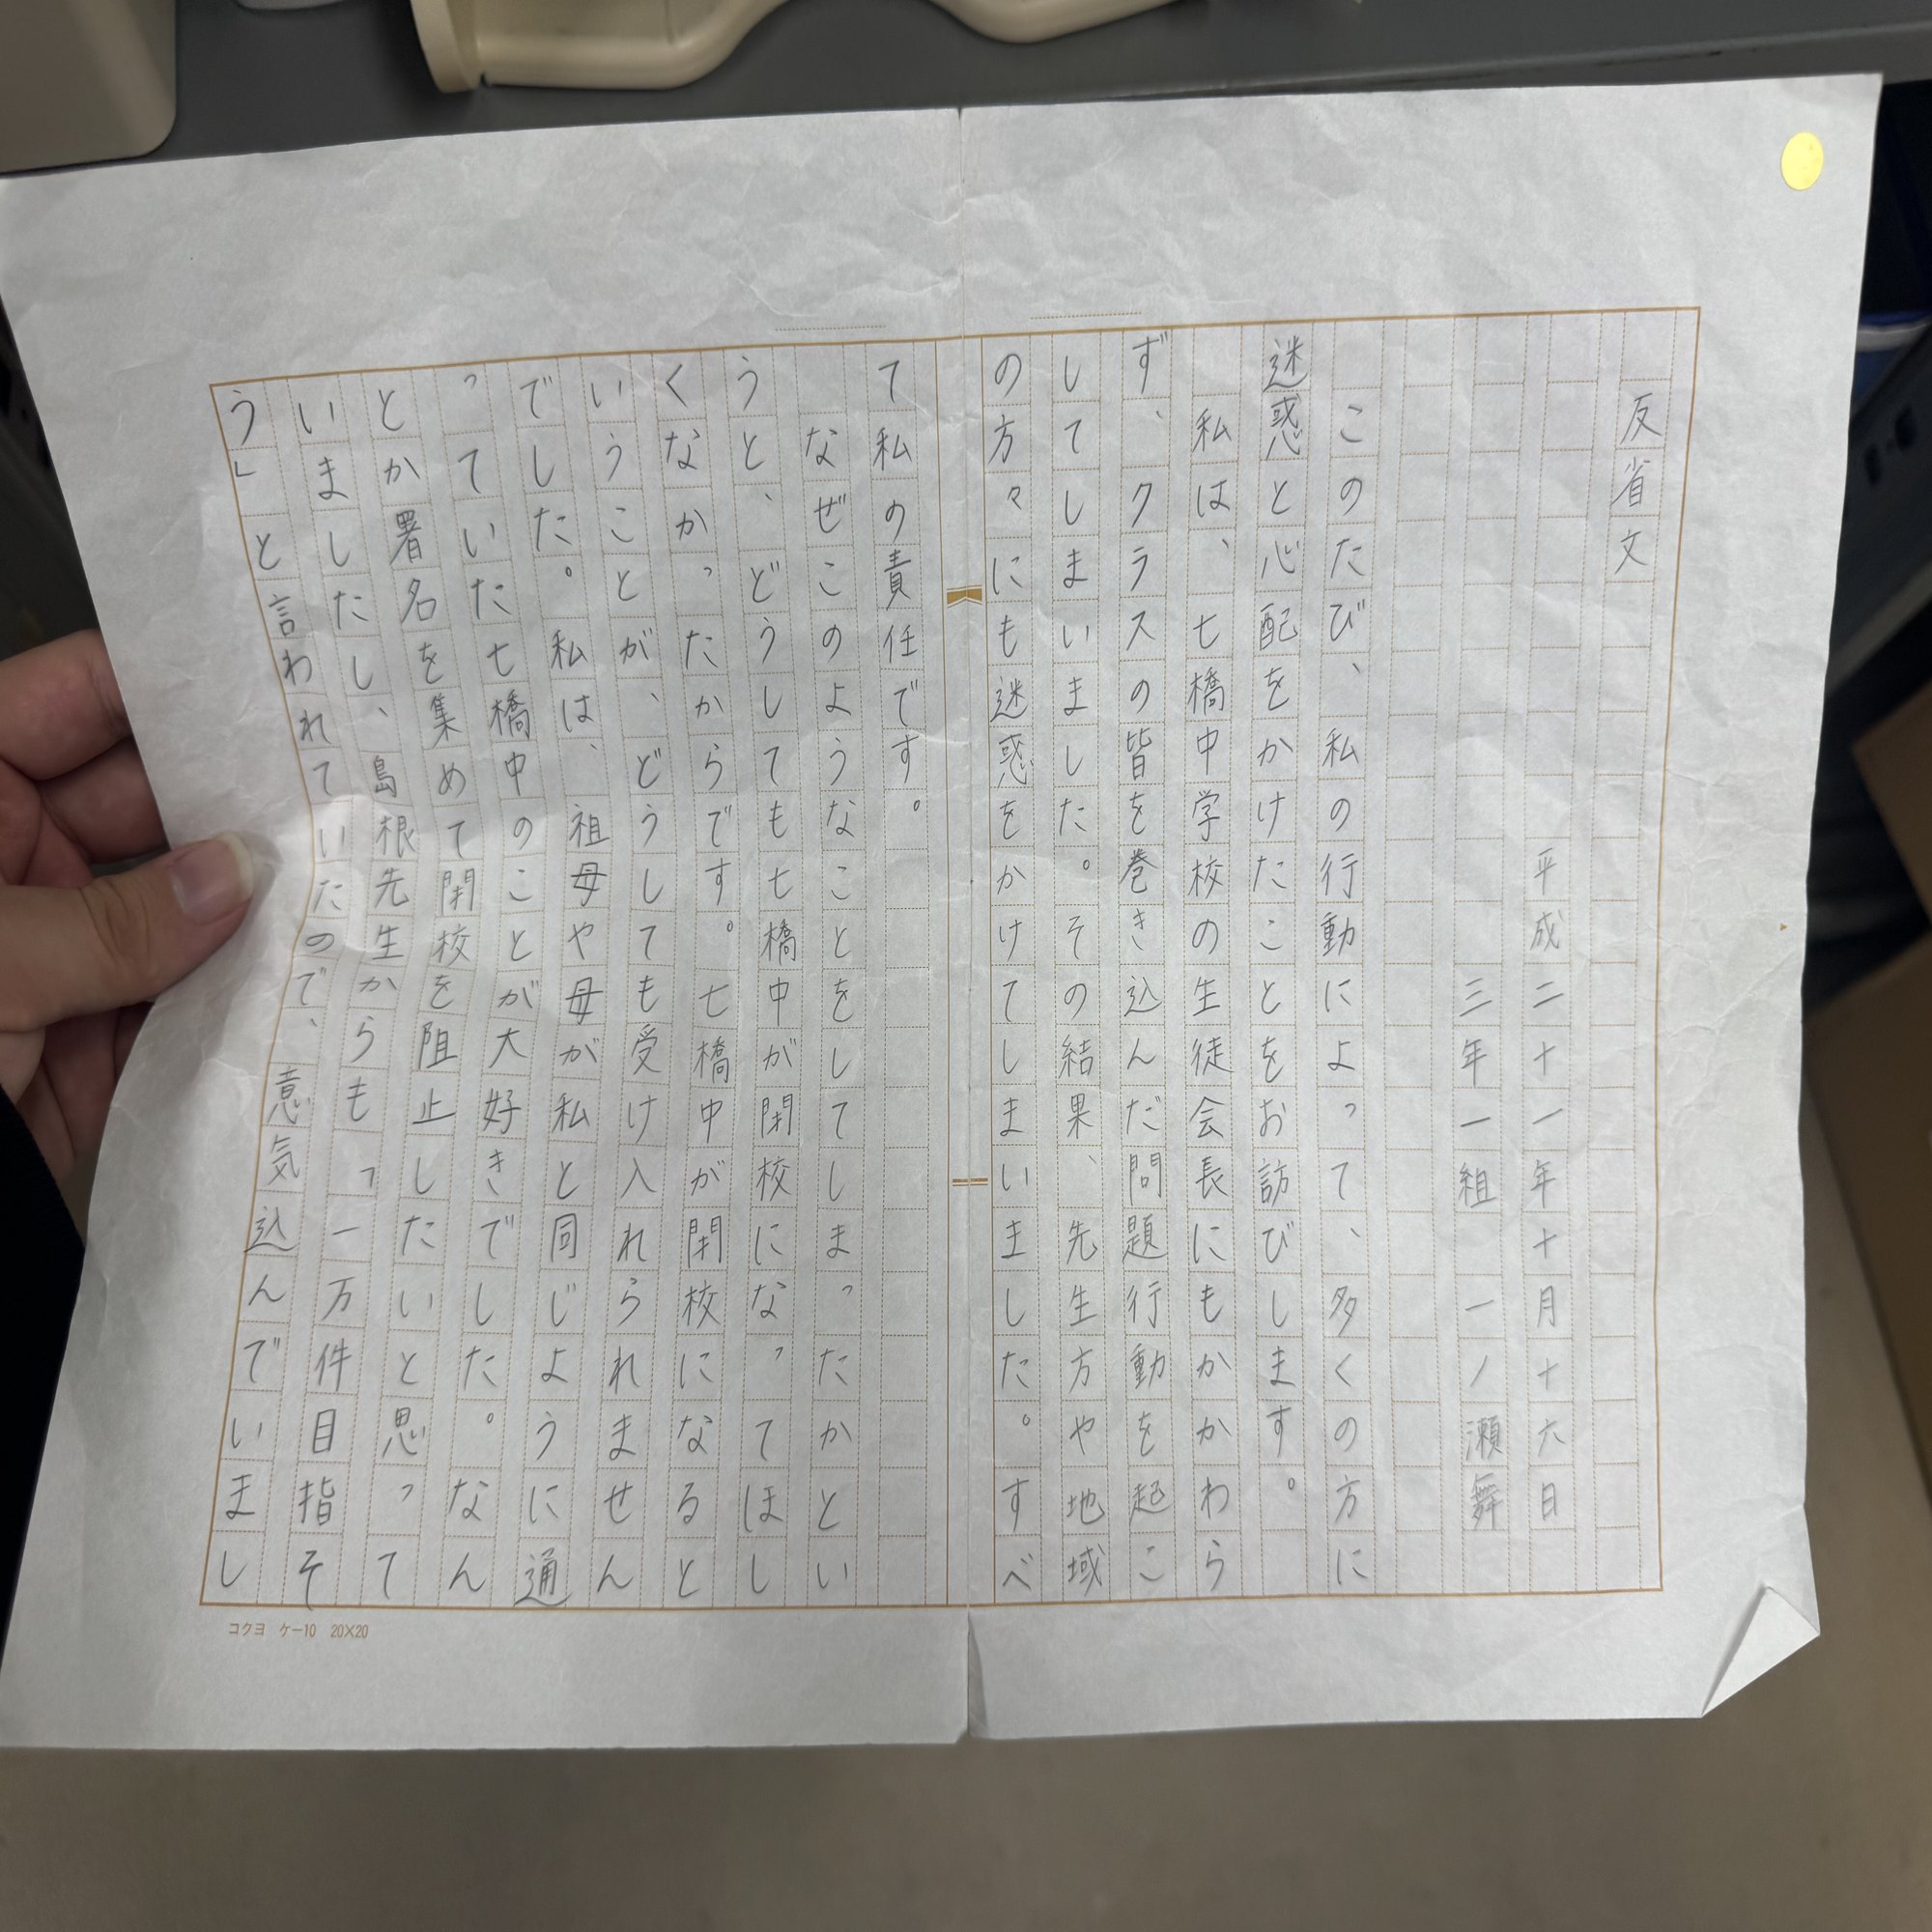 反省文
平成二十一年十月十六日
三年一組　一ノ瀬舞
このたび、私の行動によって、多くの方に
迷惑と心配をかけたことをお訪びします。
私は、七橋中学校の生徒会長にもかかわら
ず、クラスの皆を巻き込んだ問題行動を起こ
してしまいました。その結果、先生方や地域
の方々にも迷惑をかけてしまいました。すべ
て私の責任です。
なぜこのようなことをしてしまったかとい
うと、どうしても七橋中が閉校になってほし
くなかったからです。七橋中が閉校になると
いうことが、どうしても受け入れられません
でした。私は、祖母や母が私と同じように通
っていた七橋中のことが大好きでした。なん
とか署名を集めて閉校を阻止したいと思って
いましたし、島根先生からも「一万件目指そ
う」と言われていたので、意気込んでいまし
コクヨ　ケー10　20×20